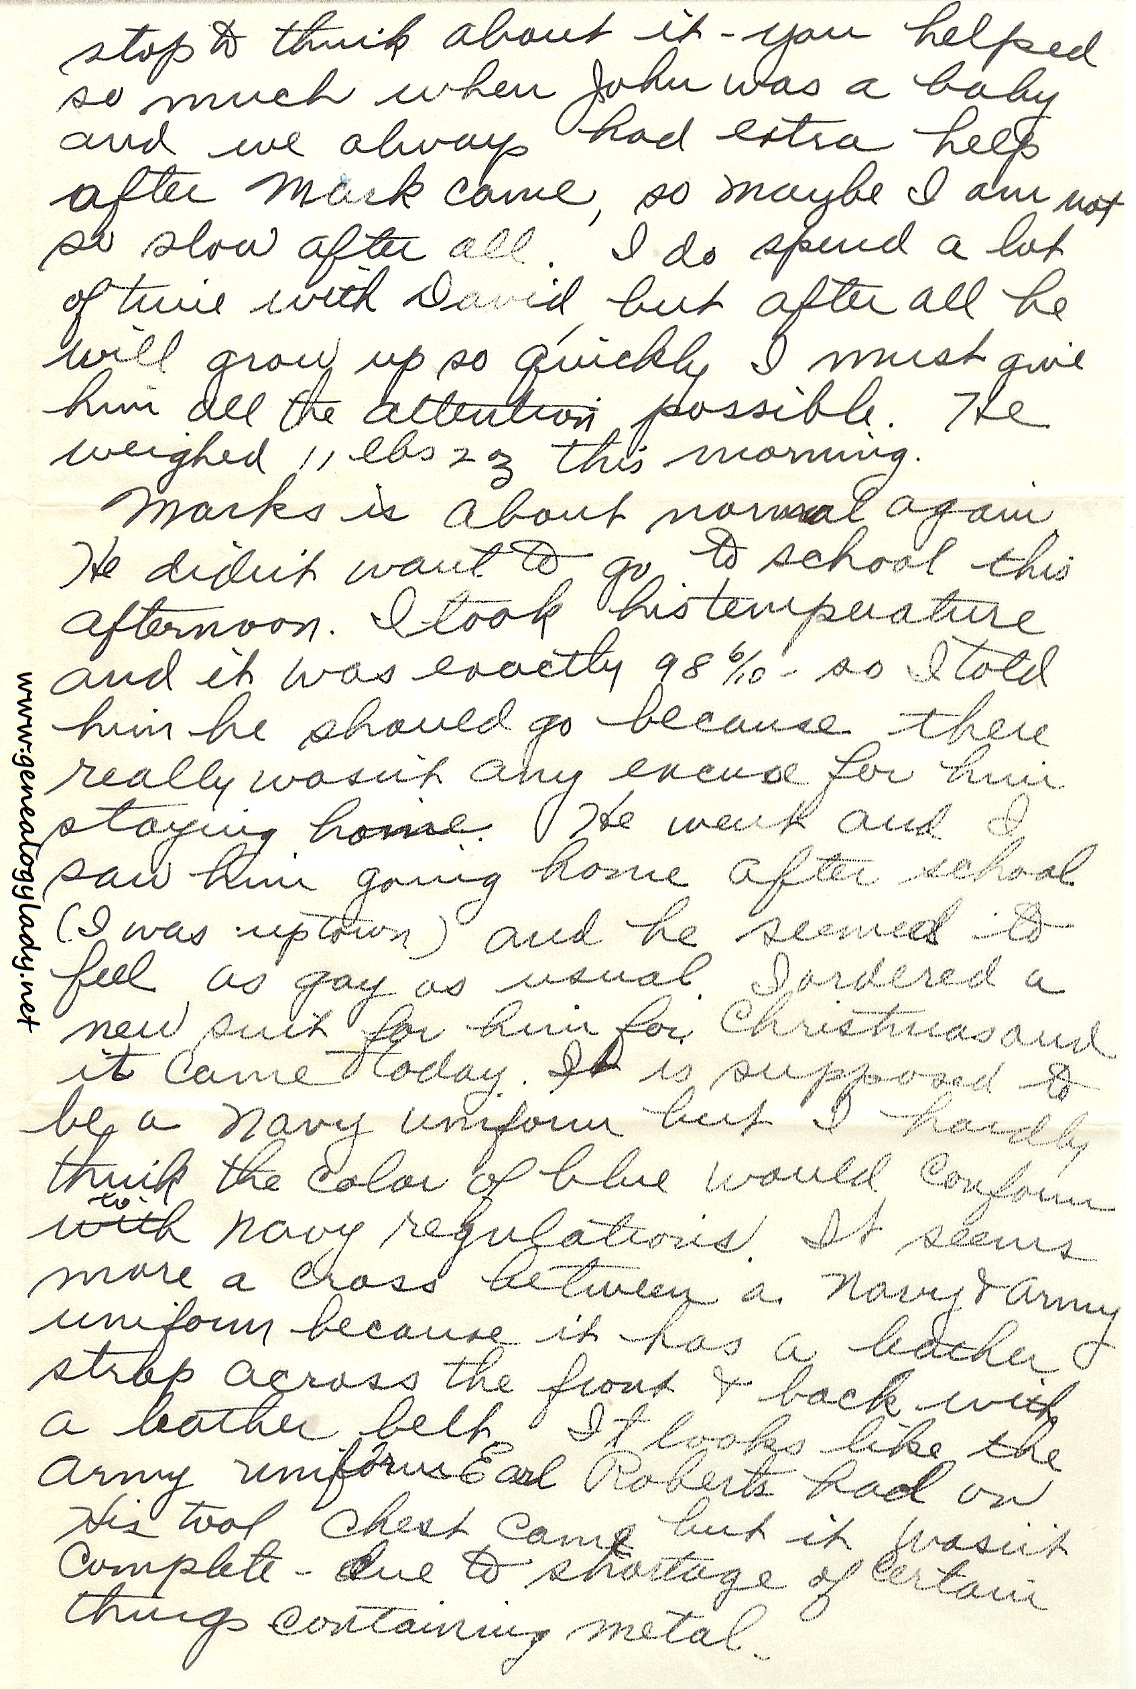 stop to think about it - you helped
so much when John was a baby
and we always had extra help
after Mark came, so maybe I am not
so slow after all. I do spend a lot
of time with David, but after all he
will grow up so quickly I must give
him all the attention possible. He
weighed 11 lbs 2 oz this morning.
Marks is about normal again.
He didn't want to go to school this
afternoon. I took his temperature
and it was exactly 98 6/10 - so I told
him he should go because there
really wasn't any excuse for him
staying home. He went and I
saw him going home after school
(I was uptown) and he seemed to
feel as gay as usual. I ordered a
new suit for him for Christmas and
it came today. It is supposed to
be a Navy uniform but I hardly
think the color of blue would conform
to
with Navy regulations. It seems
more a cross between a Navy & Army
uniform because it has a leather
strap across the front & back with
a leather belt. It looks like the
Army uniform Earl Roberts had on
His tool chest came but it wasn't
complete - due to shortage of certain
things containing metal.
www.genealogylady.net